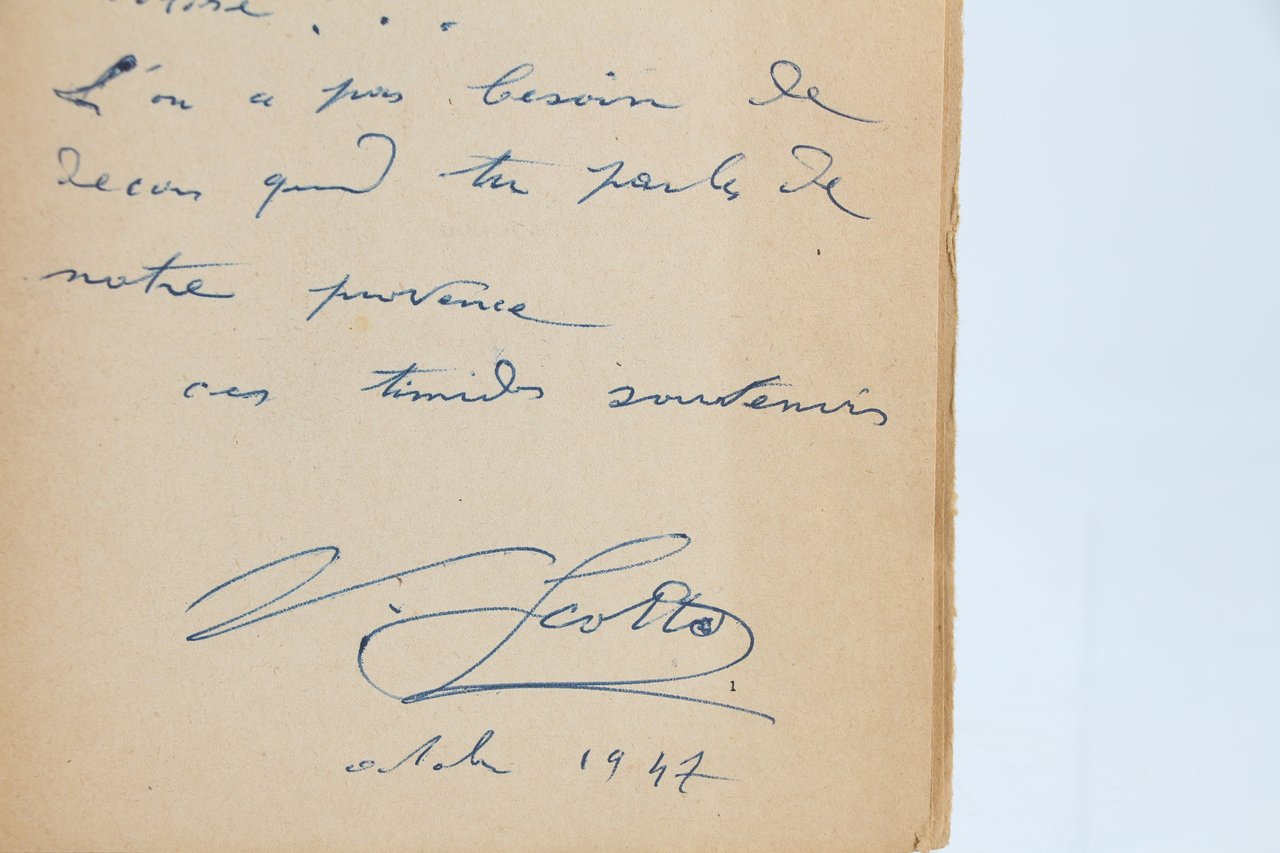 . . .
L'on a pas besoin de
decors quand tu parles de
notre provence
ces timides souvenirs
V. Scotto
1
octobre 1947